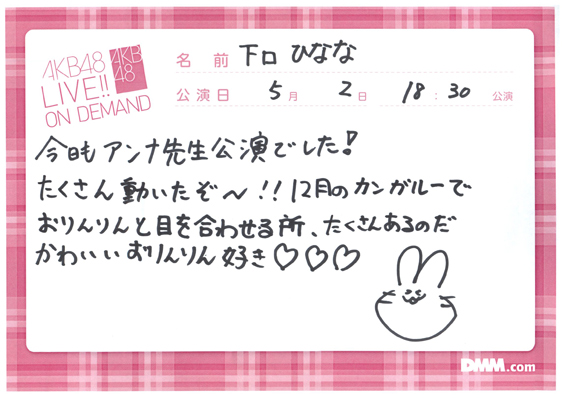 AKB48
LIVE!!
ON DEMAND
AKB
48
名前 下口ひなな
公演日 5月 2日 18:30 公演
今日もアンナ先生公演でした!
たくさん動いたぞ〜!!12月のカンガルーで
おりんりんと目を合わせる所、たくさんあるのだ
かわいいおりんりん好き♡♡♡
DMM.com